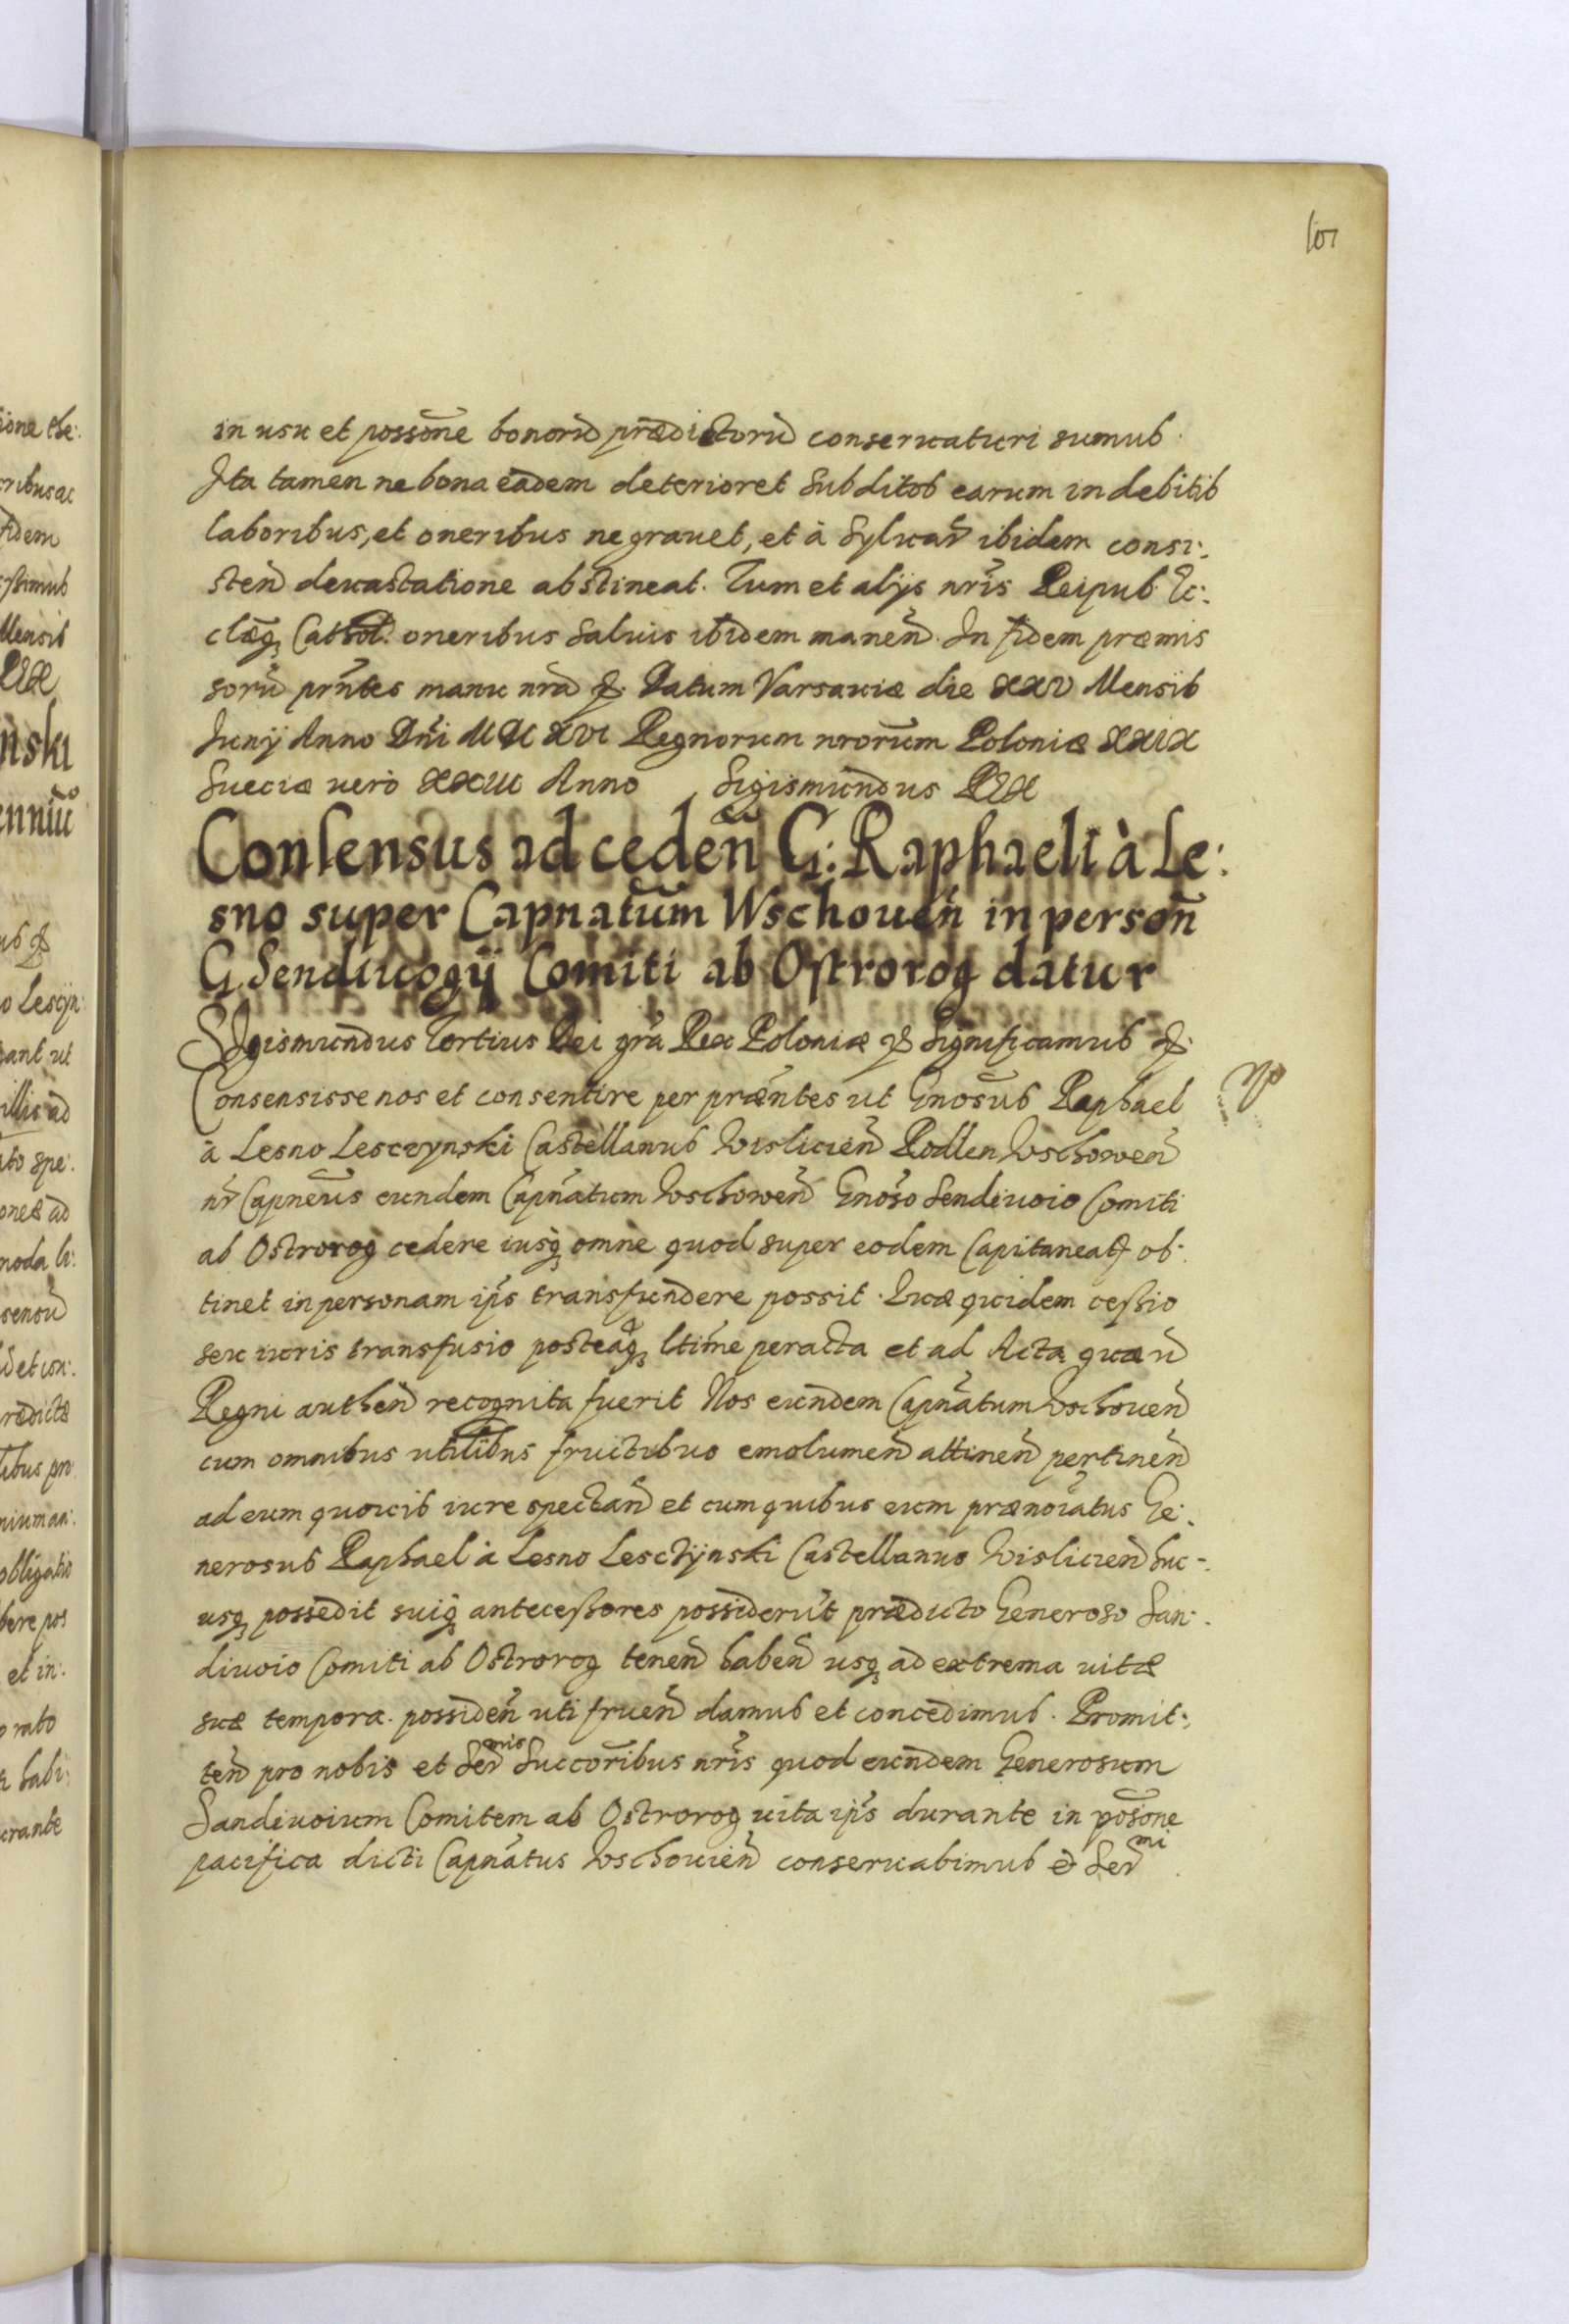 101
in usu et possōne bonorū prædictorū conseruaturi sumus.
Ita tamen ne bona eadem deterioret subditos earum indebitis
laboribus, et oneribus ne grauet, et à Syluar̄ ibidem consi:
steñ deuastatione abstineat. Tum et alijs nr̃is Reipub: Ec:
clæq3 Cathol: oneribus saluis ibidem maneñ. In fidem præmis
sorū prñtes manu nr̃a &. Datum Varsauiæ die XXV Mensis
Junij Anno Dñi MDCXVI Regnorum nrorūm Poloniæ XXIX
Sueciæ uerò XXIII Anno Sigismundus REX
Consensus ad cedeñ G: Raphaeli à Le:
sno super Capnatūm Wschoueñ in persoñ
G. Sendiuogij Comiti ab Ostrorog datur
SIgismundus Tertius Dei gr̃a Rex Poloniæ & Significamus &.
Consensisse nos et consentire per præntes ut Gnosus Raphael
à Lesno Lesczynski Castellanus Wislicieñ Rodlen Wschoweñ
nr̃ Capneus eundem Capñatum Wschoweñ Gnoso Sendiuoio Comiti
ab Ostrorog cedere iusq3 omne quod super eodem Capitaneatu ob:
tinet in personam ip̃s transfundere possit. Quæ quidem cessio
seu iuris transfusio posteaq3 ltime peracta et ad Acta quæuū
Regniautheñ recognita fuerit Nos eundem Capñatum Wschoueñ
cum omnibus utilibus fructibus emolumeñ attineñ pertineñ
ad eum quouis iure spectañ et cum quibus eum prænoiatus Ge:
nerosus Raphael à Lesno Lesctijnski Castellanus Wislicieñ huc-
usq3 possedit suiq3 antecessores possiderūt prædicto Generoso San:
diuoio Comiti ab Ostrorog teneñ habeñ usq3 ad extrema uitæ
suæ tempora. possideñ uti frueñ damus et concedimus. Promit:
teñ pro nobis et Ser̄mis Succoribus nr̃is quod eundem Generosum
Sandiuoium Comitem ab Ostrorog uita ip̃s durante in posōne
pacifica dicti Capñatus Wschouieñ conseruabimus & Ser̄mi